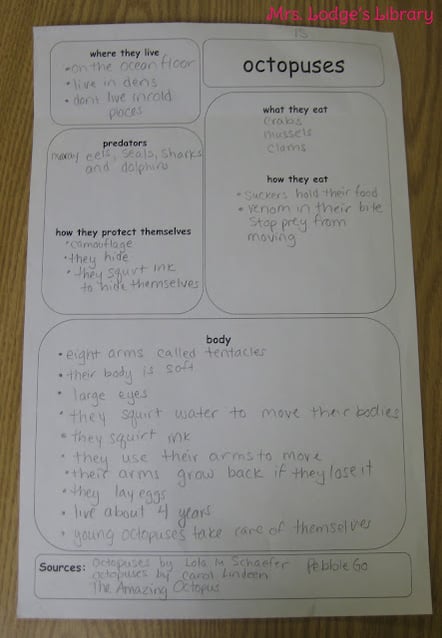 Mrs. Lodge's Library
15
octopuses
where they live
• on the ocean floor
• live in dens
• dont live in cold
places
predators
moray eels, seals, sharks
and dolphins
how they protect themselves
• camouflage
• they hide
• they squirt ink
to hide themselves
what they eat
crabs
mussels
clams
how they eat
• Suckers hold their food
• venom in their bite
Stop prey from
moving
body
• eight arms called tentacles
• their body is soft
• large eyes
• they squirt water to move their bodies
• they squirt ink
• they use their arms to move
• their arms grow back if they lose it
• they lay eggs
• live about 4 years
• young octopuses take care of themselves
Sources: Octopuses by Lola M Schaefer Pebble Go
octopuses by Carol Lindeen
The Amazing Octopus